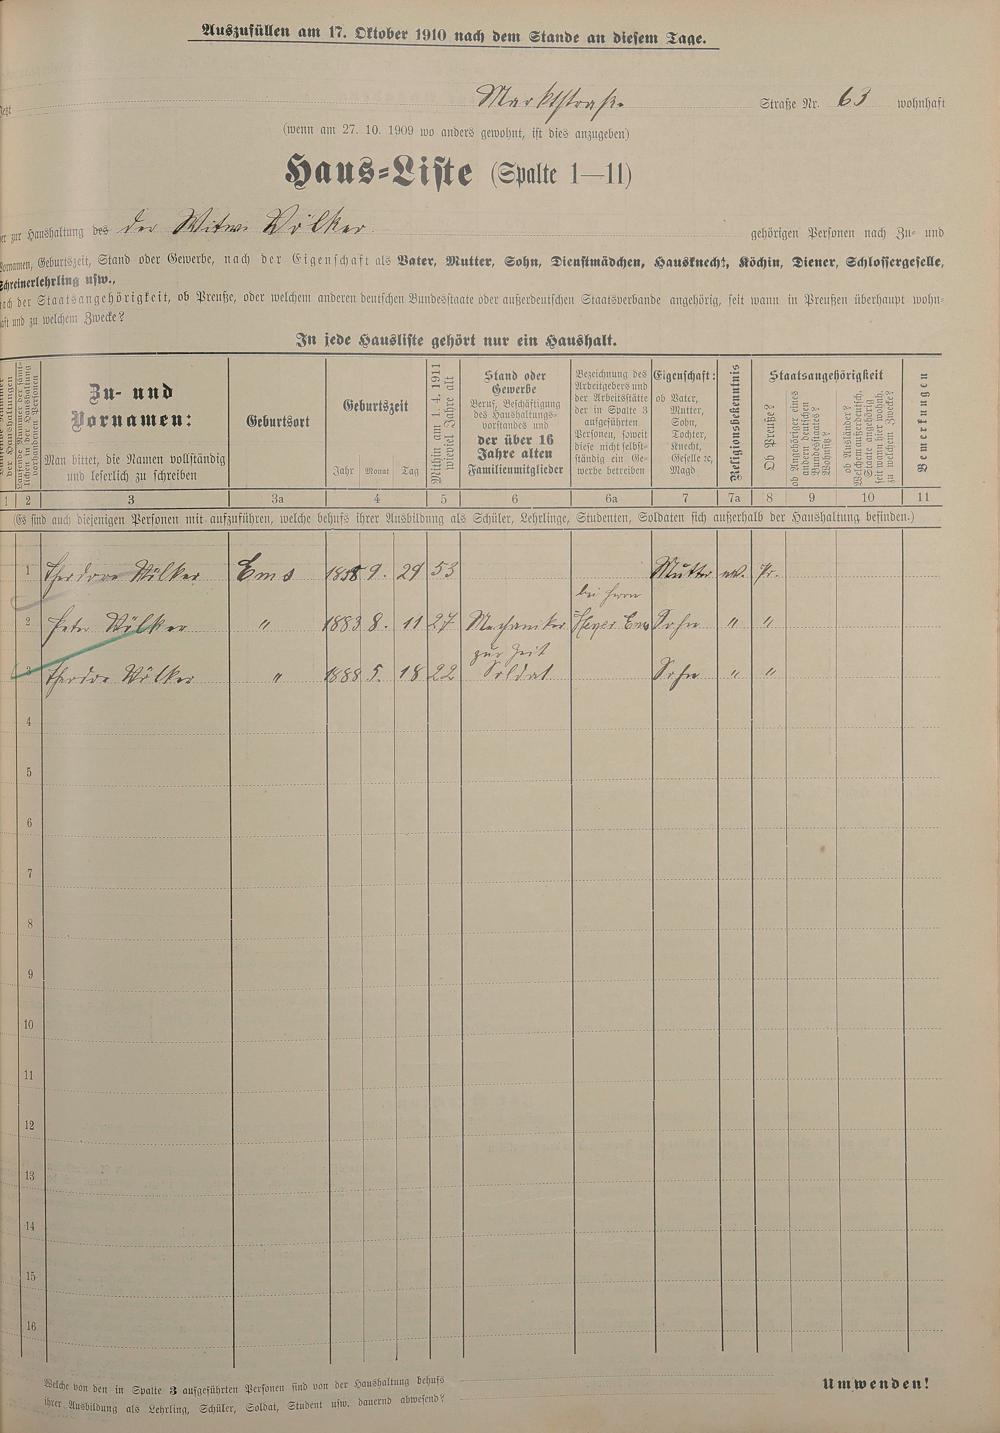 Auszufüllen am 17. Oktober 1910 nach dem Stande an diesem Tage.
Marktstraße Straße Nr. 63 wohnhaft
(wenn am 27. 10. 1909 wo anders gewohnt, ist dies anzugeben)
Haus-Liste (Spalte 1—11)
zur Haushaltung des der Witwe Völker gehörigen Personen nach Zu- und
Vornamen, Geburtszeit, Stand oder Gewerbe, nach der Eigenschaft als Vater, Mutter, Sohn, Dienstmädchen, Hausknecht, Köchin, Diener, Schlossergeselle,
Schreinerlehrling usw.,
nach der Staatsangehörigkeit, ob Preuße, oder welchem anderen deutschen Bundesstaate oder außerdeutschen Staatsverbande angehörig, seit wann in Preußen überhaupt wohn-
haft und zu welchem Zwecke?
In jede Hausliste gehört nur ein Haushalt.
der Haushaltungen
Laufende Nummer der sämt-
lichen in der Haushaltung
vorhandenen Personen
Zu- und
Vornamen:
Man bittet, die Namen vollständig
und leserlich zu schreiben
Geburtsort
Geburtszeit
Jahr Monat Tag
Mithin am 1. 4. 1911
wieviel Jahre alt
Stand oder
Gewerbe
Beruf, Beschäftigung
des Haushaltungs-
vorstandes und
der über 16
Jahre alten
Familienmitglieder
Bezeichnung des
Arbeitgebers und
der Arbeitsstätte
der in Spalte 3
aufgeführten
Personen, soweit
diese nicht selbst-
ständig ein Ge-
werbe betreiben
Eigenschaft:
ob Vater,
Mutter,
Sohn,
Tochter,
Knecht,
Geselle ꝛc,
Magd
Religionsbekenntnis
Staatsangehörigkeit
Ob Preuße?
ob Angehöriger eines
andern deutschen
Bundesstaates?
Wohnsitz?
ob Ausländer?
Welchem außerdeutsch.
Staate angehörig
seit wann hier wohnh.
zu welchem Zwecke?
Bemerkungen
1 2 3 3a 4 5 6 6a 7 7a 8 9 10 11
(Es sind auch diejenigen Personen mit aufzuführen, welche behufs ihrer Ausbildung als Schüler, Lehrlinge, Studenten, Soldaten sich außerhalb der Haushaltung befinden.)
1 Theodore Völker Ems 1858 9. 29 53 Mutter ev. Pr.
bei Herrn
2 Peter Völker " 1883 8. 11 27 Mechaniker Ems Sohn " "
zur Zeit
3 Theodor Völker " 1888 5. 18 22 Soldat Sohn " "
4
5
6
7
8
9
10
11
12
13
14
15
16
Welche von den in Spalte 3 aufgeführten Personen sind von der Haushaltung behufs
ihrer Ausbildung als Lehrling, Schüler, Soldat, Student usw. dauernd abwesend?
Umwenden!